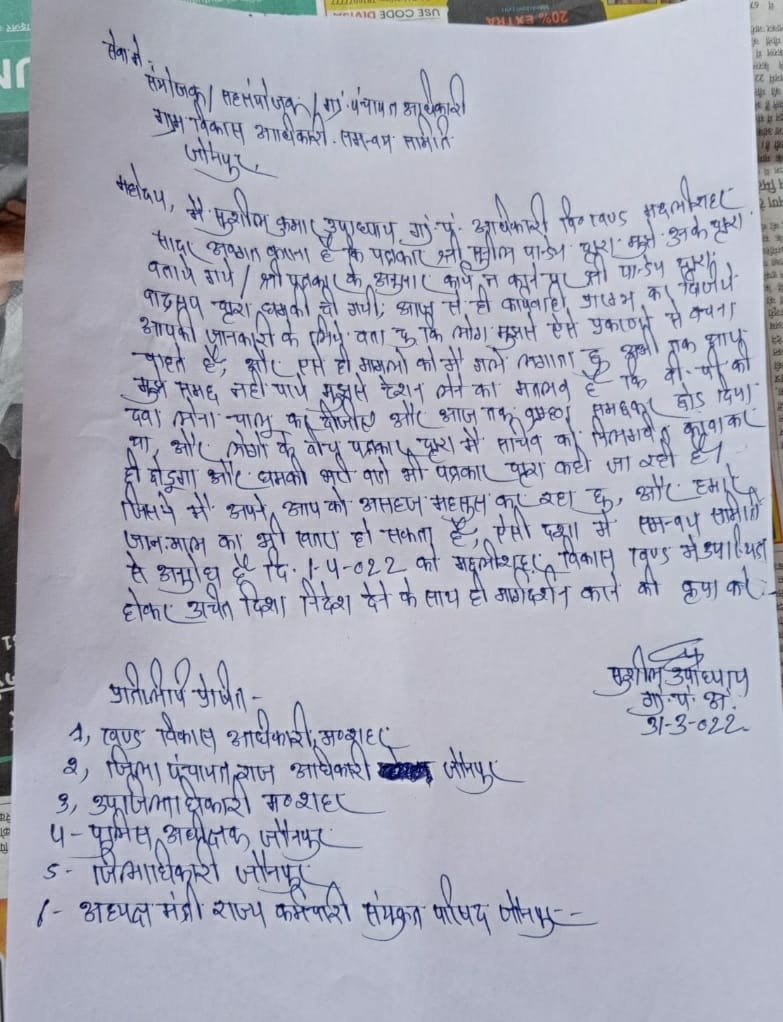 USE CODE DIVISA
20% EXTRA
सेवा में,
संयोजक / सहसंयोजक / ग्रा. पंचायत अधिकारी
ग्राम विकास अधिकारी. समन्वय समिति
जौनपुर,
महोदय, मैं सुशील कुमार उपाध्याय ग्रा. पं. अधिकारी वि० खण्ड मछलीशहर
सादर अवगत कराना है कि पत्रकार श्री सुशील पान्डेय द्वारा मुझे उनके द्वारा
बताये गये / श्री पत्रकार के अनुसार कार्य न करने पर श्री पान्डेय द्वारा
वाट्सप द्वारा धमकी दी गयी, आप से हो कार्यवाही प्रारम्भ कर दिजीये
आपको जानकारी के लिये बता दु कि लोग मुझसे ऐसे प्रकरणो से बचना
चाहते है, और ऐसे ही मामलो को मै गले लगाता हु अभी तक आप
मुझे समझ नही पाये मुझसे टेंशन लेने का मतलब है कि बी.पी की
दवा लेना चालू कर दीजीए और आज तक समझकर छोड दिया
था, और लोगो के बीच पत्रकार द्वारा मै सचिव को निलम्बित करवा कर
ही छोडुगा और धमकी भरी बाते भी पत्रकार द्वारा कही जा रही है।
जिससे मै अपने आप को असहज महसुस कर रहा हु, और हमारे
जान.माल का भी खतरा हो सकता है, ऐसी दशा मे समन्वय समिति
से अनुरोध है दि. 1-4-022 को मछलीशहर विकास खण्ड मे उपस्थित
होकर उचित दिशा निर्देश देने के साथ ही मार्गदर्शन करने की कृपा करे
सुशील उपाध्याय
ग्रा. पं. अ.
31-3-022
प्रतिलिपि प्रेषित -
1, खण्ड विकास अधिकारी, म०शहर
2, जिला पंचायत राज अधिकारी जौनपुर
3, उपजिलाधिकारी म०शहर
4 - पुलिस अधीक्षक जौनपुर
5 - जिलाधिकारी जौनपुर
6 - अध्यक्ष मंत्री राज्य कर्मचारी संयुक्त परिषद जौनपुर -